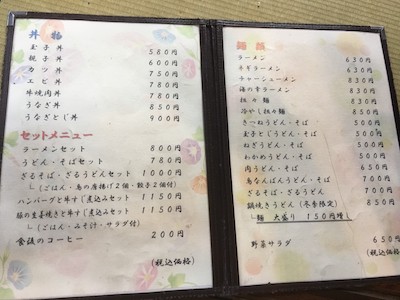 丼物
玉子丼 580円
親子丼 600円
カツ丼 750円
エビ丼 780円
牛焼肉丼 780円
うなぎ丼 850円
うなぎとじ丼 900円
セットメニュー
ラーメンセット 800円
うどん・そばセット 780円
ざるそば・ざるうどんセット 1000円
(ごはん・鳥の唐揚げ2個・餃子2個付)
ハンバーグと牛すじ煮込みセット 1150円
豚の生姜焼きと牛すじ煮込みセット 1150円
(ごはん・みそ汁・サラダ付)
食後のコーヒー 200円
(税込価格)
麺類
ラーメン 630円
ネギラーメン 630円
チャーシューメン 830円
海の幸ラーメン 830円
担々麺 830円
冷やし担々麺 850円
きつねうどん・そば 500円
玉子とじうどん・そば 500円
ねぎうどん・そば 500円
わかめうどん・そば 500円
肉うどん・そば 650円
鳥なんばうどん・そば 700円
ざるそば・ざるうどん 700円
鍋焼きうどん(冬季限定) 850円
麺 大盛り 150円増
野菜サラダ 650円
(税込価格)